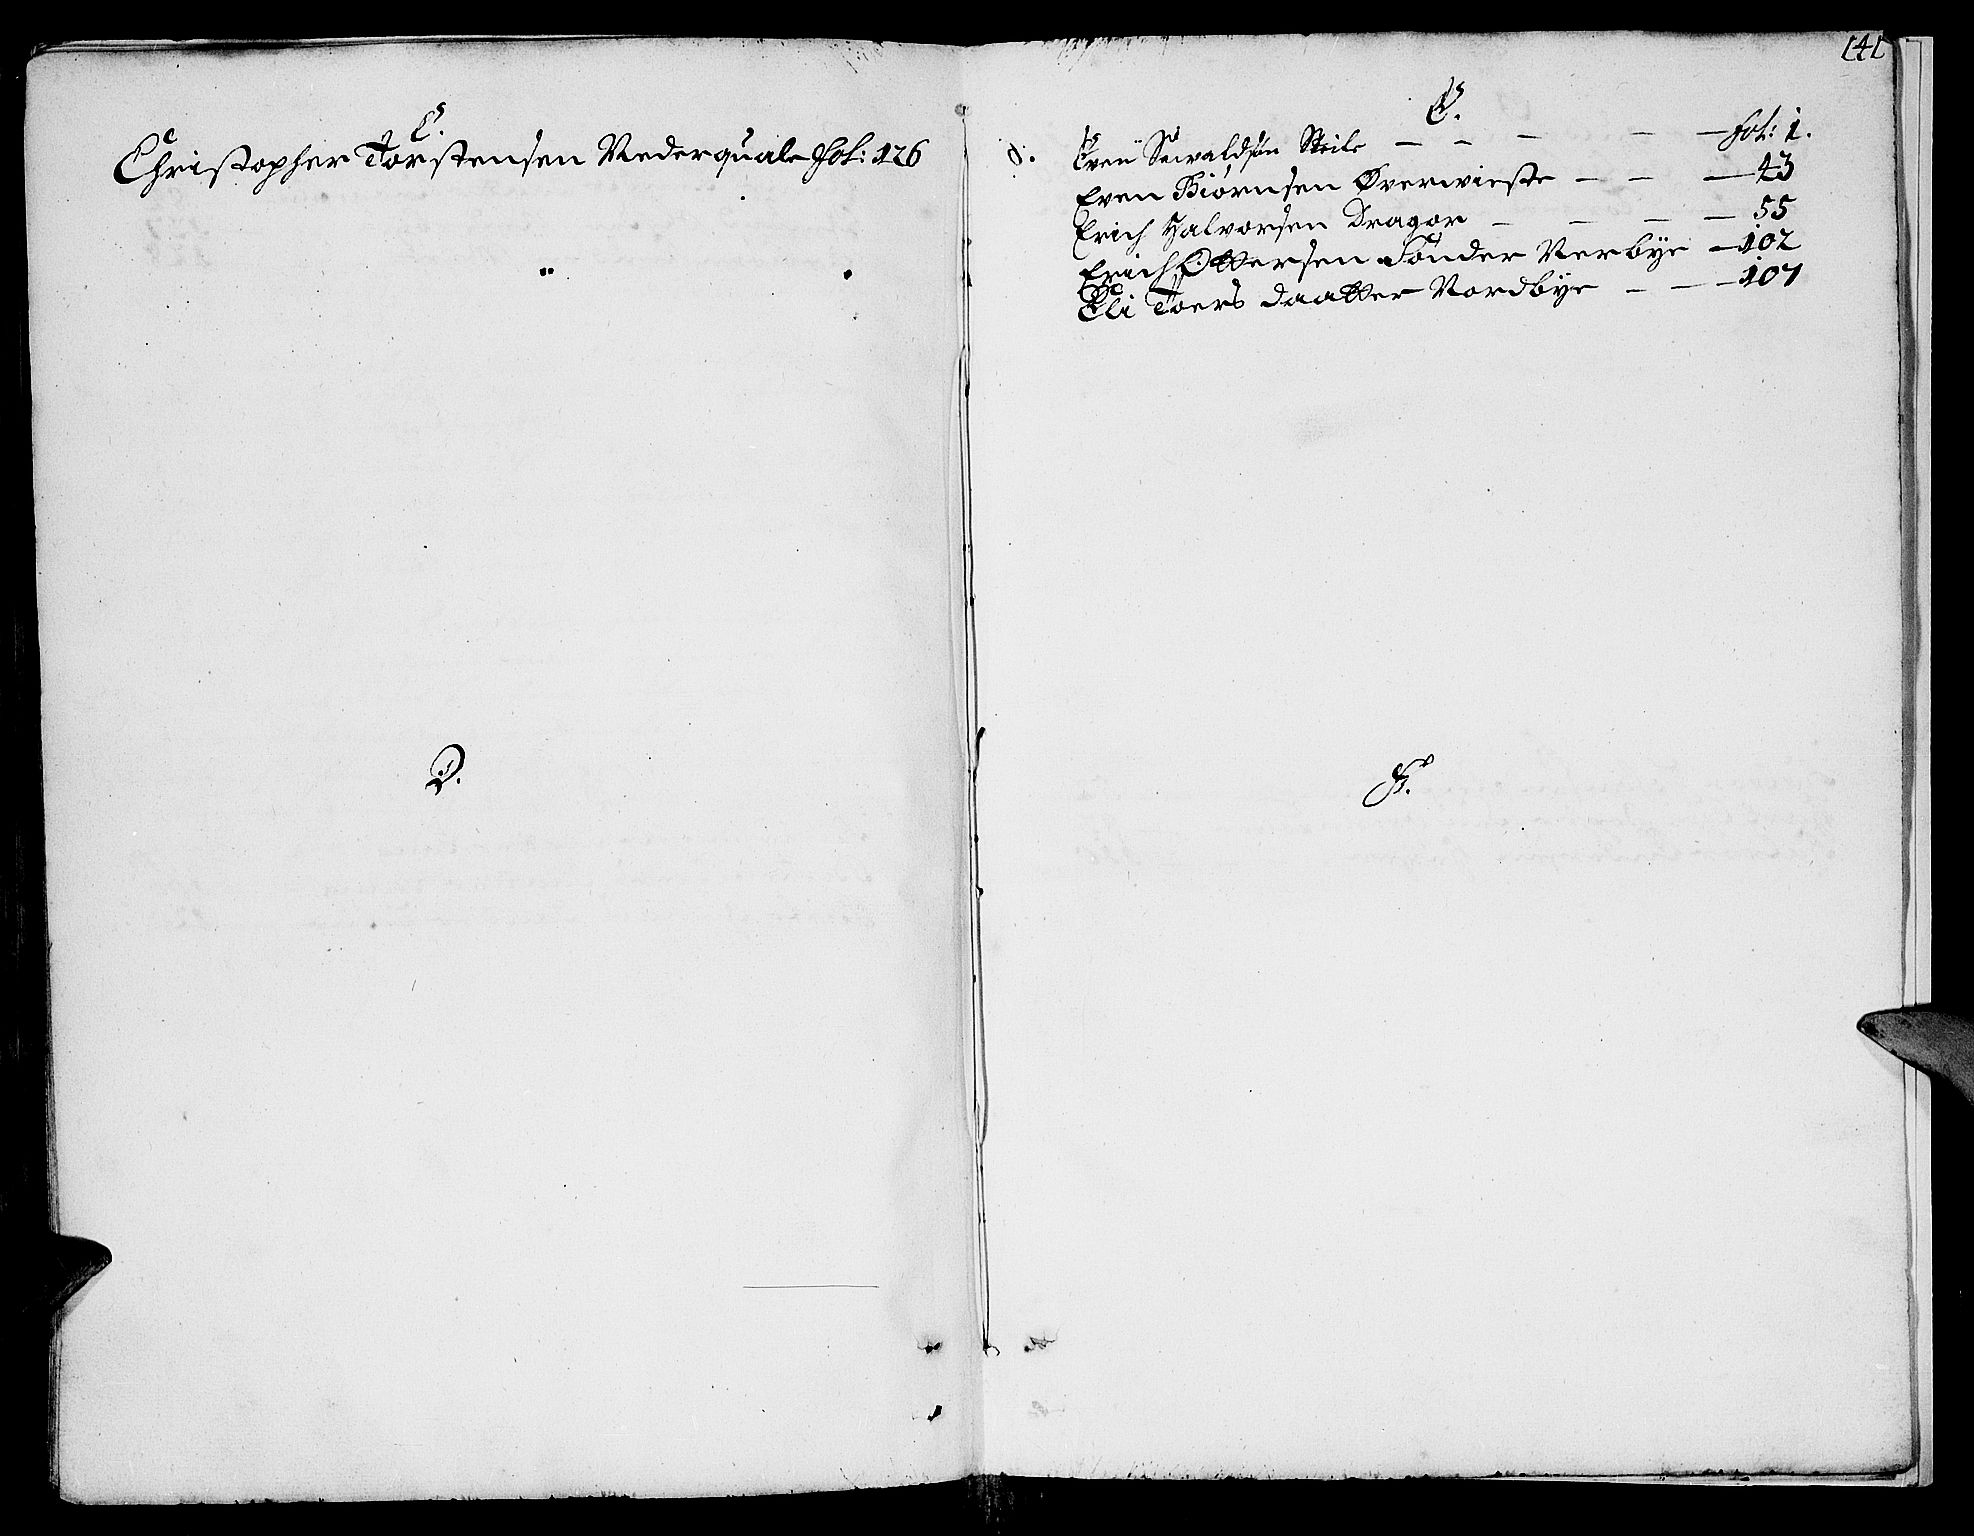 C.
Christopher Torstensen Nederquale fol: 126
D.
141
E.
Even Siwaldsøn Steile — — — — fol: 1.
Even Biørnsen Øverwieste — — — 43
Erich Halvorsen Dragor — — — — 55
Erich Ottersen Sønder Verbÿe — 102
Eli Toers daatter Nordbÿe — — — 107
F.